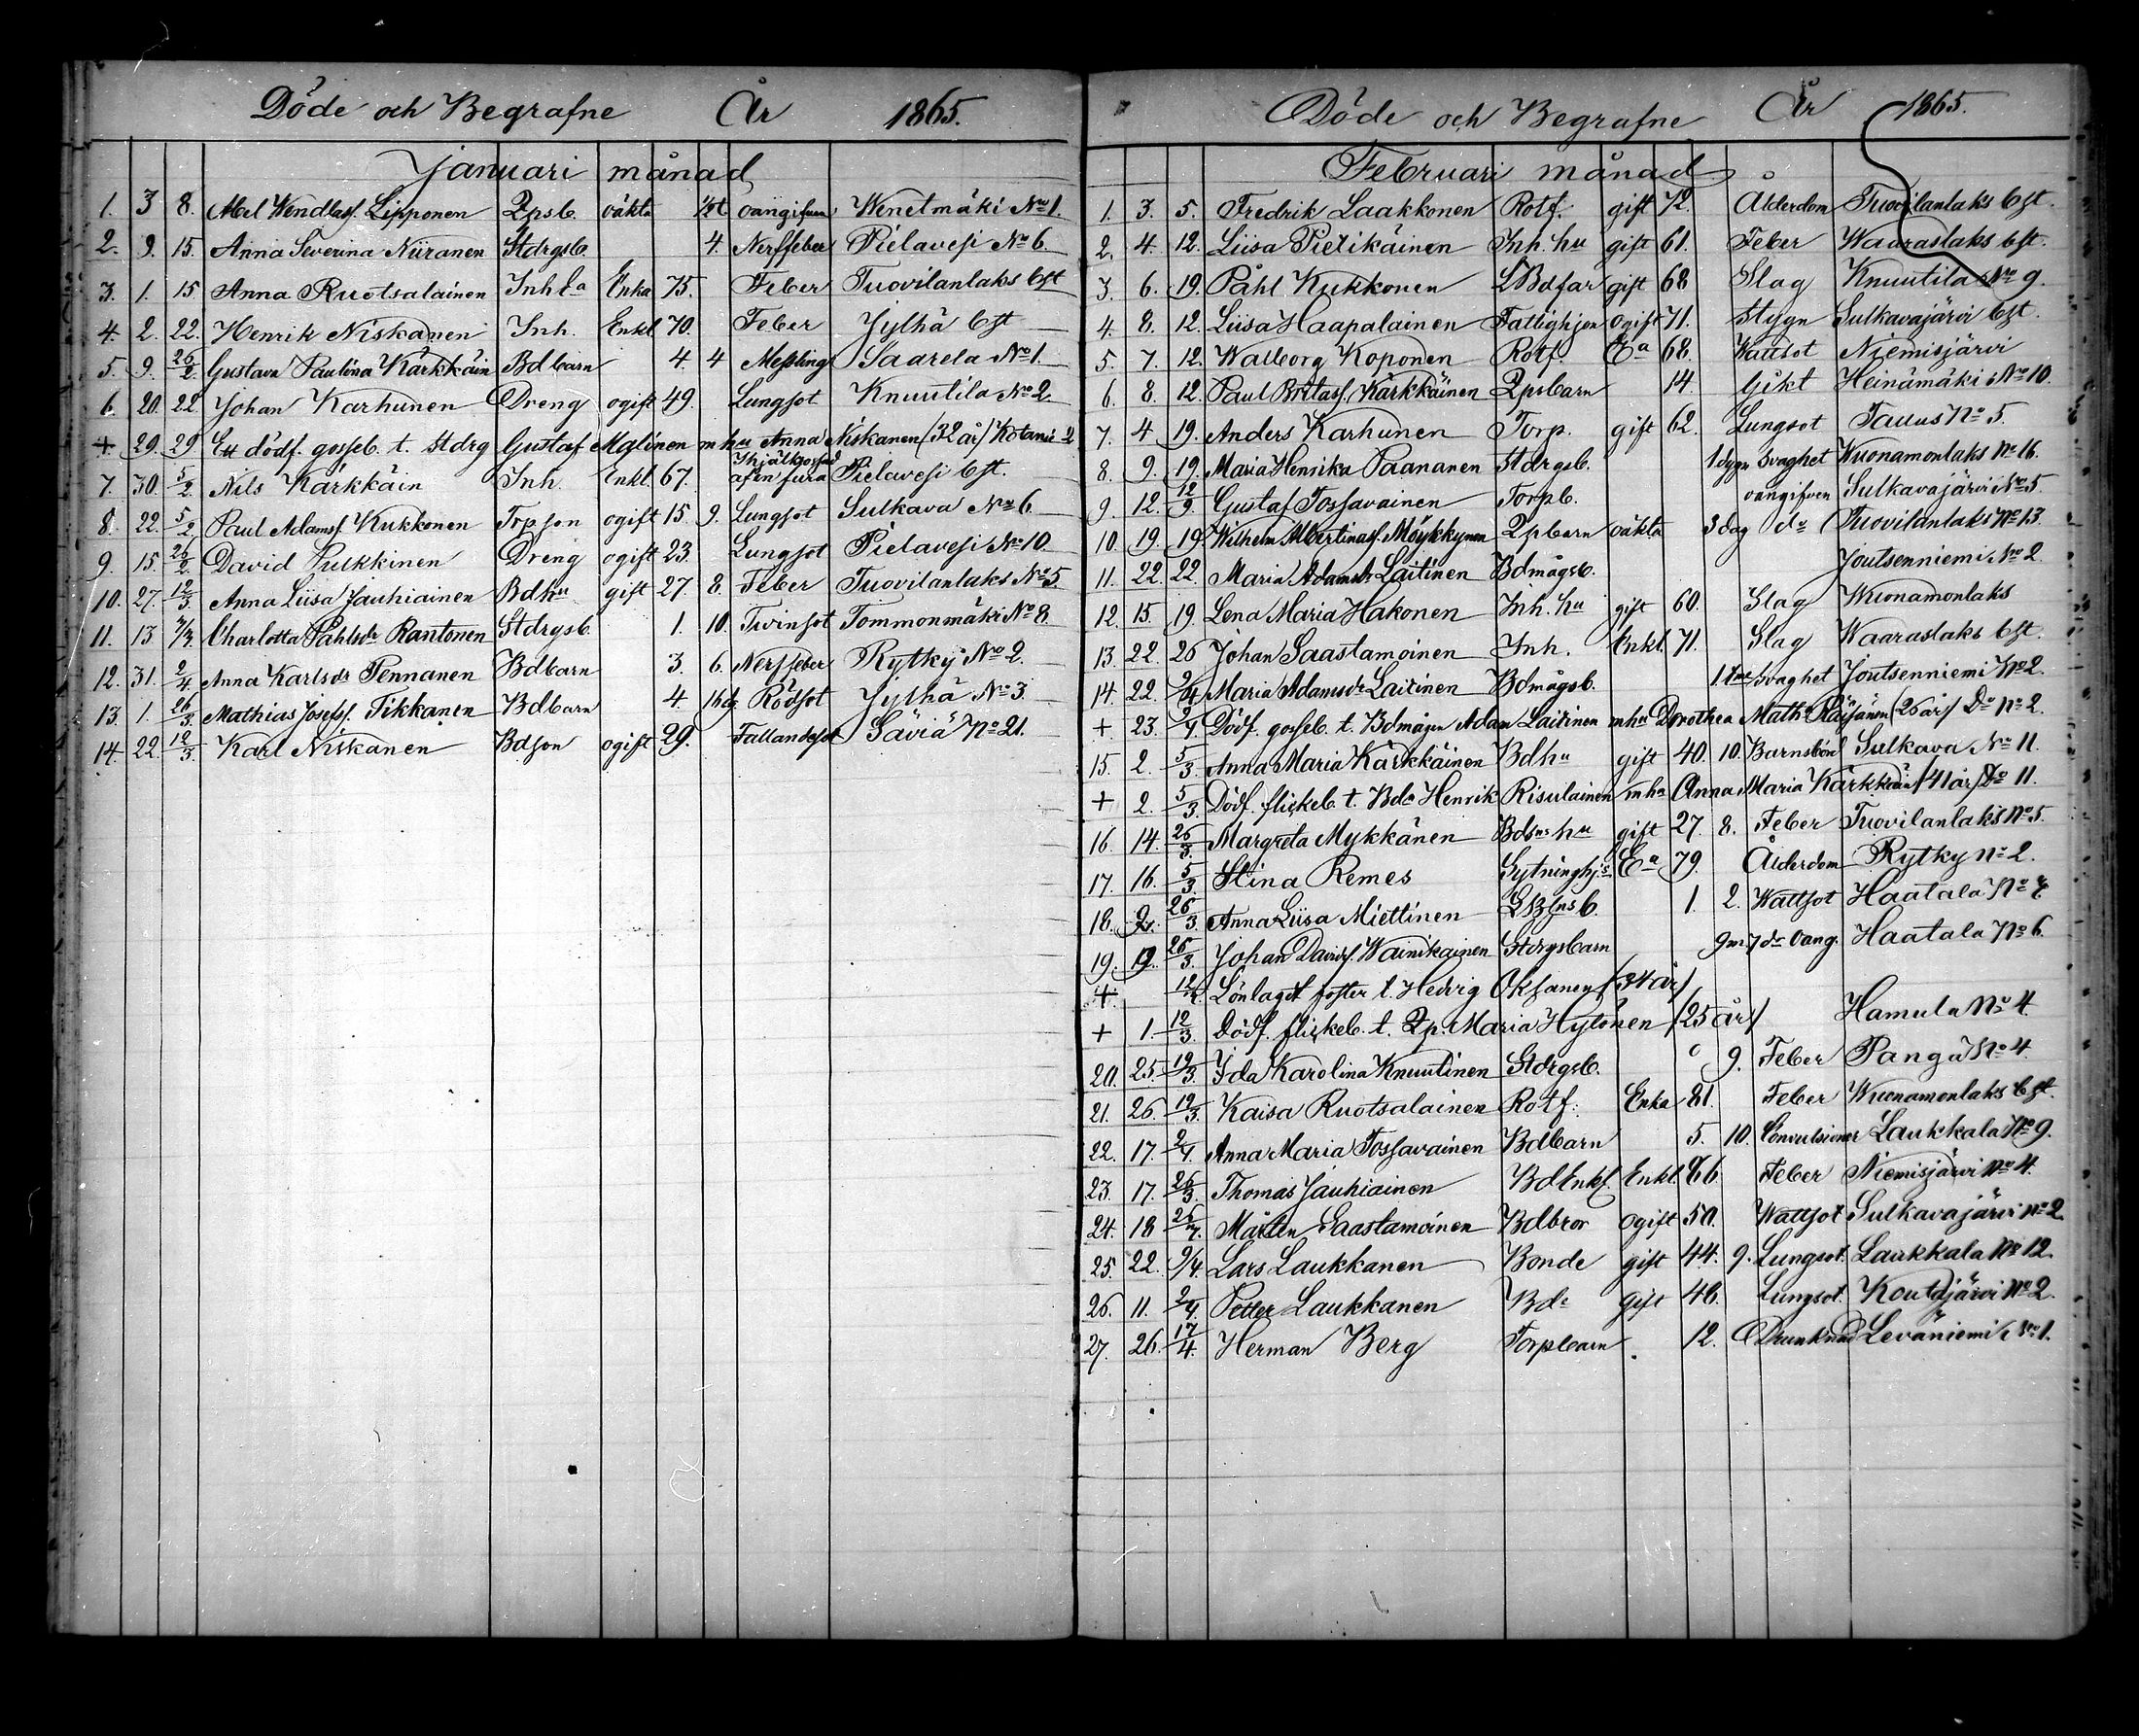 Döde och Begrafne År 1865.
Januari månad
1. 3 8. Abel Wendlasf. Lipponen Qpsb. oäkta oangifven Wenetmäki No 1.
2. 9. 15. Anna Severina Niiranen Stdrgsb. 4. Nerffeber Pielavesi No 6.
3. 1. 15 Anna Ruotsalainen Inh Enka 75. Feber Tuovilanlaks bst
4. 2. 22. Henrik Niskanen Inh. Enkl. 70. Feber Jylhä bst
5. 9. 26/2. Gustava Paulina Kärkkäin Bdbarn 4 4 Messling Saarela No 1.
6. 20. 22 Johan Karhunen Dreng ogift 49. Lungsot Knuutila No 2.
+ 29. 29 Ett dödf. gosseb. t. Stdrg Gustaf Malinen m hu Anna Niskanen (32 år) Kotanie 2
7. 30. 5/2. Nils Kärkkäin Inh. Enkl. 67. Ihjälkrossad af en fura Pielavesi bst.
8. 22. 5/2 Paul Adamsf Kukkonen Torpson ogift 15. 9. Lungsot Sulkava No 6
9. 15. 26/2. David Pulkkinen Dreng ogift 23. Lungsot Pielavesi No 10.
10. 27. 12/3. Anna Liisa Jauhiainen Bdhu gift 27. 8. Feber Tuovilanlaks No 5.
11. 13 Charlotta Påhlsdr Rantonen Stdrgsb. 1. 10. Tvinsot Tommonmäki No 8.
12. 31. 2/4. Anna Karlsdr Pennanen Bdbarn 3. 6. Nerffeber Rytky No 2.
13. 1. 26/3. Mathias Josefsf. Tikkanen Bdbarn 4. 16 dg. Rödsot Jylhä No 3.
14. 22. 12/3. Karl Niskanen Bdson ogift 29. Fallandesot Säviä No 21.
Döde och Begrafne År 1865.
Februari månad
1. 3. 5. Fredrik Laakkonen Rotf. gift 72. Ålderdom Tuovilanlaks bst.
2. 4. 12. Liisa Pietikäinen Inh. hu gift 61. Feber Waaraslaks bst.
3. 6. 19. Påhl Kukkonen LBdfar gift 68 Slag Knuutila No 9.
4. 8. 12. Liisa Haapalainen Fattighjon Ogift 71. Stygn Sulkavajärvi bst.
5. 7. 12. Walborg Koponen Rotf. Ea 68. Wattsot Niemisjärvi
6. 8. 12. Paul Britasf. Kärkkäinen Qpsbarn 14. Gikt Heinämäki No 10.
7. 4 19. Anders Karhunen Torp. gift 62. Lungsot Taulus No 5.
8. 9. 19. Maria Henrika Paananen Stdrgsb. 1 dygn Svaghet Wuonamonlaks No 16.
9. 12. 12/9. Gustaf Tossavainen Torpb. oangifven Sulkavajärvi No 5.
10. 19. 19. Wilhelm Albertinasf. Möykkynen Qpbarn oäkta 3 dag do Tuovilanlaks No 13.
11. 22. 22. Maria Adamsdr Laitinen Bdmågsb. Joutsenniemi No 2.
12. 15. 19. Lena Maria Hakonen Inh. hu gift 60. Slag Wuonamonlaks
13. 22. 26 Johan Saastamoinen Inh. Enkl. 71. Slag Waaraslaks bst.
14. 22. 2/4 Maria Adamsdr Laitinen Bdmågsb. Svaghet Joutsenniemi No 2.
+ 23. Dödf. gosseb. t. Bdmågen Adam Laitinen mhu Dorothea Math. Räisänen (26 år) Do No 2.
15. 2. 5/3. Anna Maria Kärkkäinen Bdhu gift 40. 10. Barnsbörd Sulkava No 11.
+ 2. 5/3. Dödf. flickeb. t. Bdn Henrik Risulainen mhu Anna Maria Kärkkäin (41 år) Do 11.
16 14. 26/3. Margreta Mykkänen Bdsns hu gift 27. 8. Feber Tuovilanlaks No 5.
17. 16. 5/3. Stina Remes Sytninghjs Ea 79. Ålderdom Rytky No 2.
18. 2. 26/3. Anna Liisa Miettinen LBsnsb. 1. 2. Wattsot Haatala No 7
19. 19. 26/3. Johan Davidsf. Wainikainen Stdrgsbarn 9 m. 7 d. Oang. Haatala No 6.
+ Lönlagdt foster t. Hedvig Oksanen (34 år)
+ 1. 12/3. Dödf. flickeb. t. Qp. Maria Hytönen (25 år) Hamula No 4.
20. 25. 19/3. Ida Karolina Knuutinen Stdrgsb. 9. Feber Panga No 4.
21. 26. 19/3. Kaisa Ruotsalainen Rotf. Enka 81. Feber Wuonamonlaks bst.
22. 17. 2/4. Anna Maria Tossavainen Bdbarn 5. 10. Convulsioner Laukkala No 9.
23. 17. 26/3. Thomas Jauhiainen BdEnkl. Enkl. 66. Feber Niemisjärvi No 4.
24. 18 Mårten Saastamoinen Bdbror Ogift 50. Wattsot Sulkavajärvi No 2
25. 22. 9/4. Lars Laukkanen Bonde gift 44. 9. Lungsot Laukkala No 12.
26. 11. 2/4. Petter Laukkanen Bdn gift 46. Lungsot. Koutajärvi No 2.
27. 26. 17/4. Herman Berg Torpbarn. 12. Drunknad Leväniemi No 1.